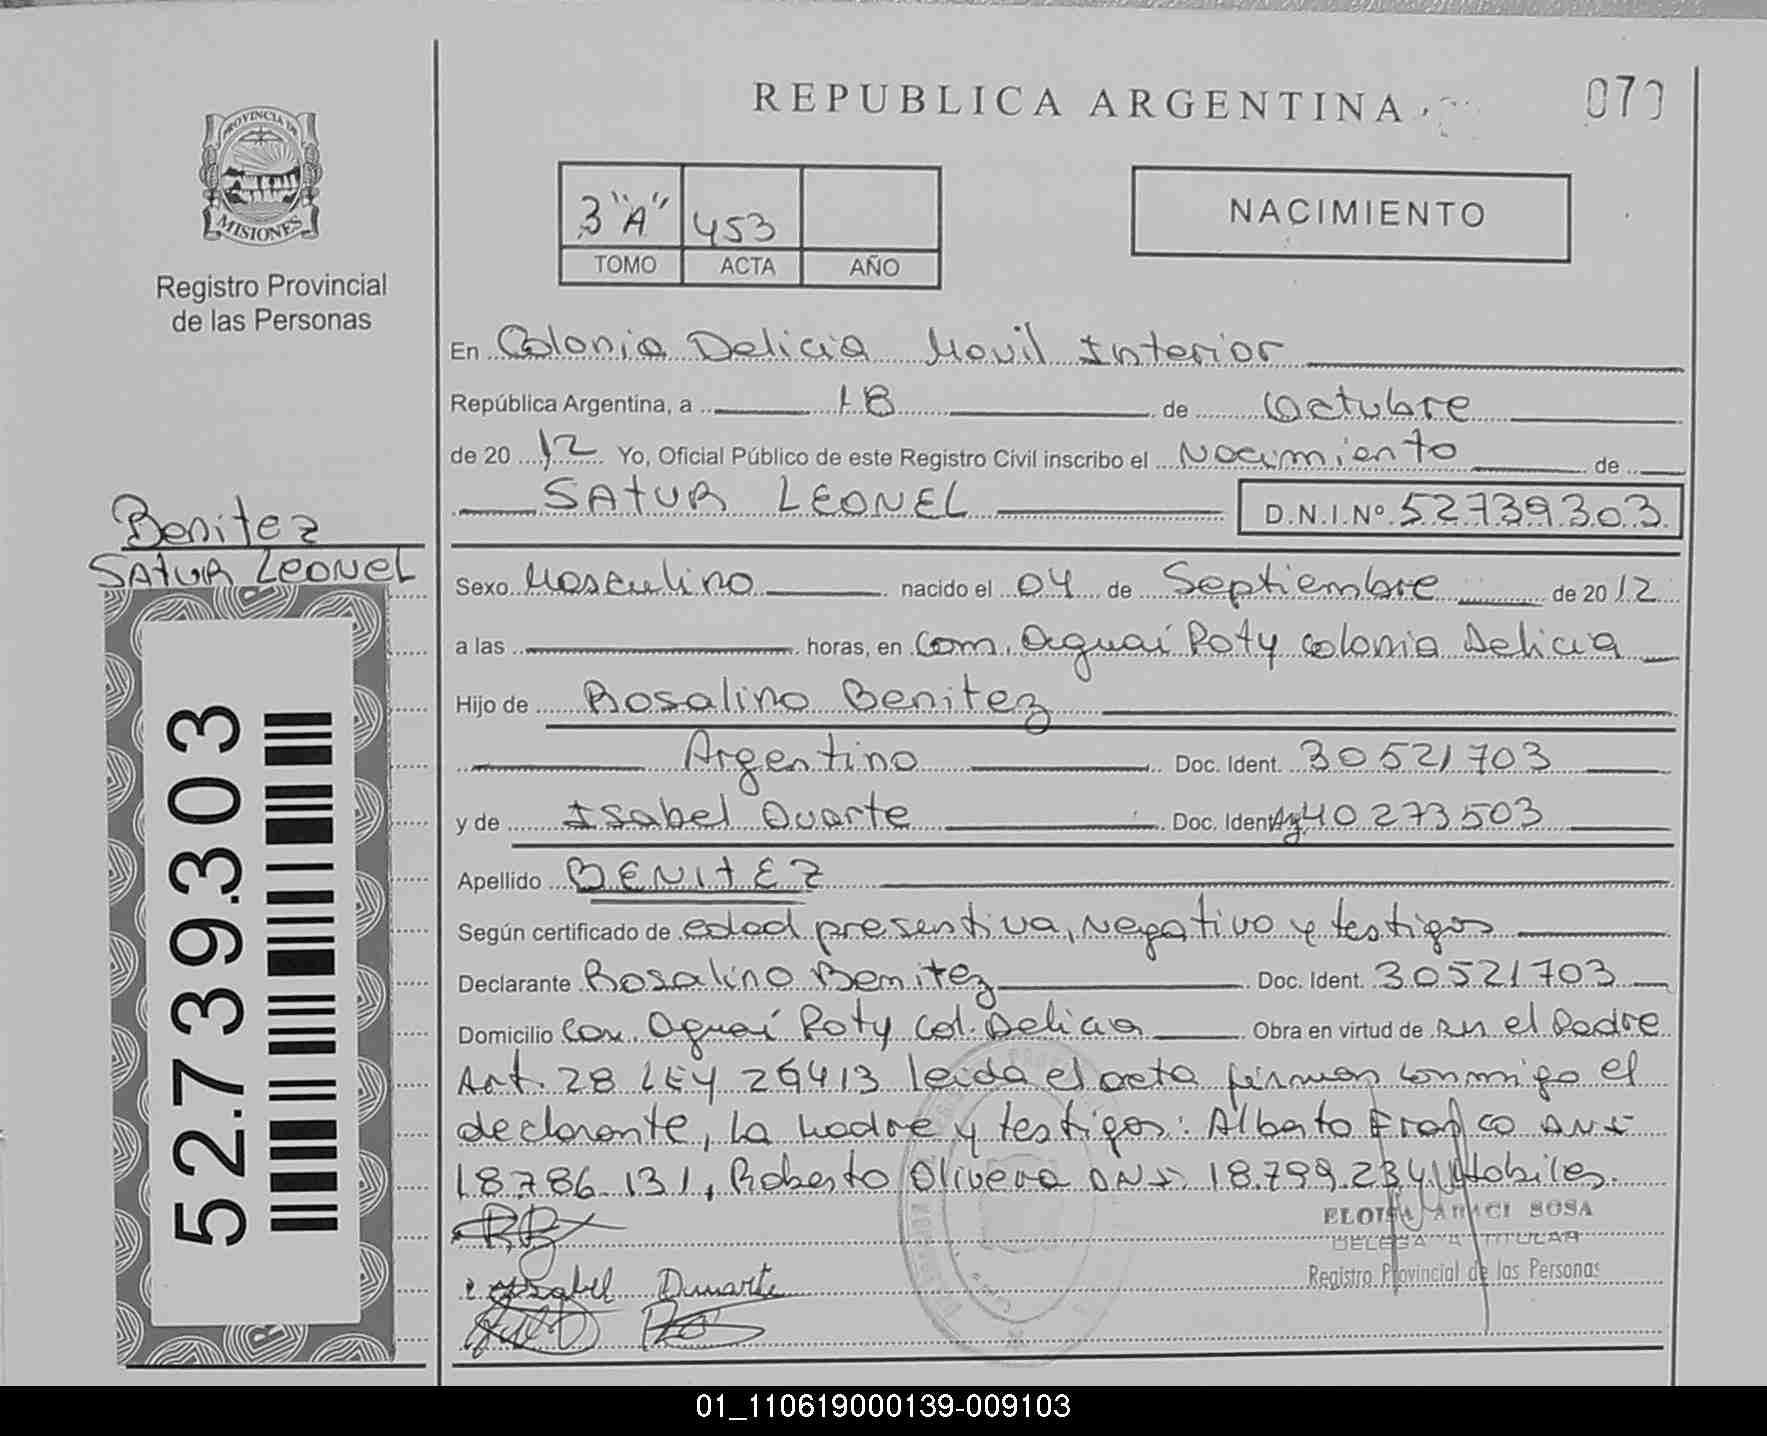 REPUBLICA ARGENTINA
PROVINCIA DE
MISIONES
Registro Provincial
de las Personas
3 "A" 453
TOMO ACTA AÑO
NACIMIENTO
En Colonia Delicia Movil Interior
República Argentina, a 18 de Octubre
de 20 12 Yo, Oficial Público de este Registro Civil inscribo el Nacimiento de
SATUR LEONEL D.N.I.Nº 52739303
Benitez
SATUR LEONEL
52.739.303
Sexo Masculino nacido el 04 de Septiembre de 20 12
a las horas, en Com. Aguaí Poty Colonia Delicia
Hijo de Rosalino Benitez
Argentino Doc. Ident. 30521703
y de Isabel Duarte Doc. Ident. Arg 40273503
Apellido BENITEZ
Según certificado de edad presentiva, Negativo y testigos
Declarante Rosalino Benitez Doc. Ident. 30521703
Domicilio Com. Aguaí Poty Col. Delicia Obra en virtud de Ser el Padre
Art. 28 LEY 26413 leida el acta firman conmigo el
declarante, La Madre y testigos: Alberto DNI
18.786.131, Roberto Olivera DNI 18.799.234 Habiles.
ELOISA ARACI SOSA
DELEGADA TITULAR
Registro Provincial de las Personas
Isabel Duuarte
01_110619000139-009103